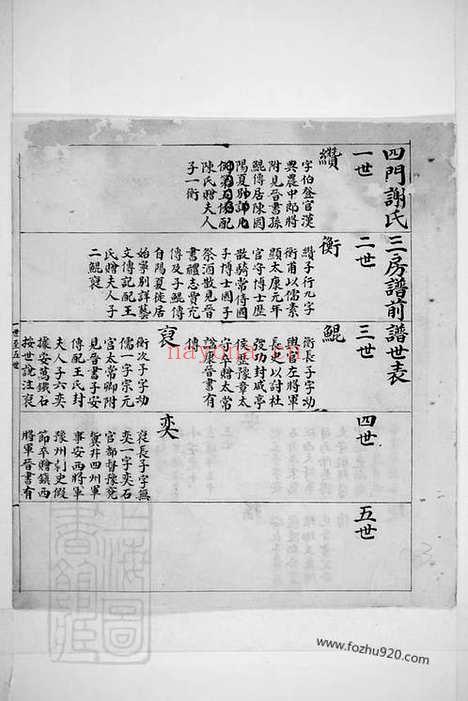 四門謝氏三房譜前譜世表
一世
二世
三世
四世
五世
纘
字伯登官漢
典農中郎將
附見晉書孫
鯤傳居陳國
陽夏
陳氏贈夫人
子一衡
衡
纘子行九字
衡甫以儒素
顯太康元年
官守博士歷
散騎常侍國
子博士國子
祭酒散見晉
書禮志賈充
傳及子鯤傳
自陽夏徙居
始寧別詳藝
文傳記配王
氏贈夫人子
二鯤裒
鯤
衡長子字幼
輿官左將軍
長史以討杜
弢功封咸亭
侯歷豫章太
守卒贈太常
諡康晉書有
傳
裒
衡次子字幼
儒一字宗元
官太常卿附
見晉書子安
傳配王氏封
夫人子六奕
據安萬鐵石
按世說注裒
奕
裒長子字無
奕一字奕石
官都督豫兗
冀并四州軍
事安西將軍
豫州刺史假
節卒贈鎮西
將軍晉書有
一世至五世
nayona.cn
www.fozhu920.com